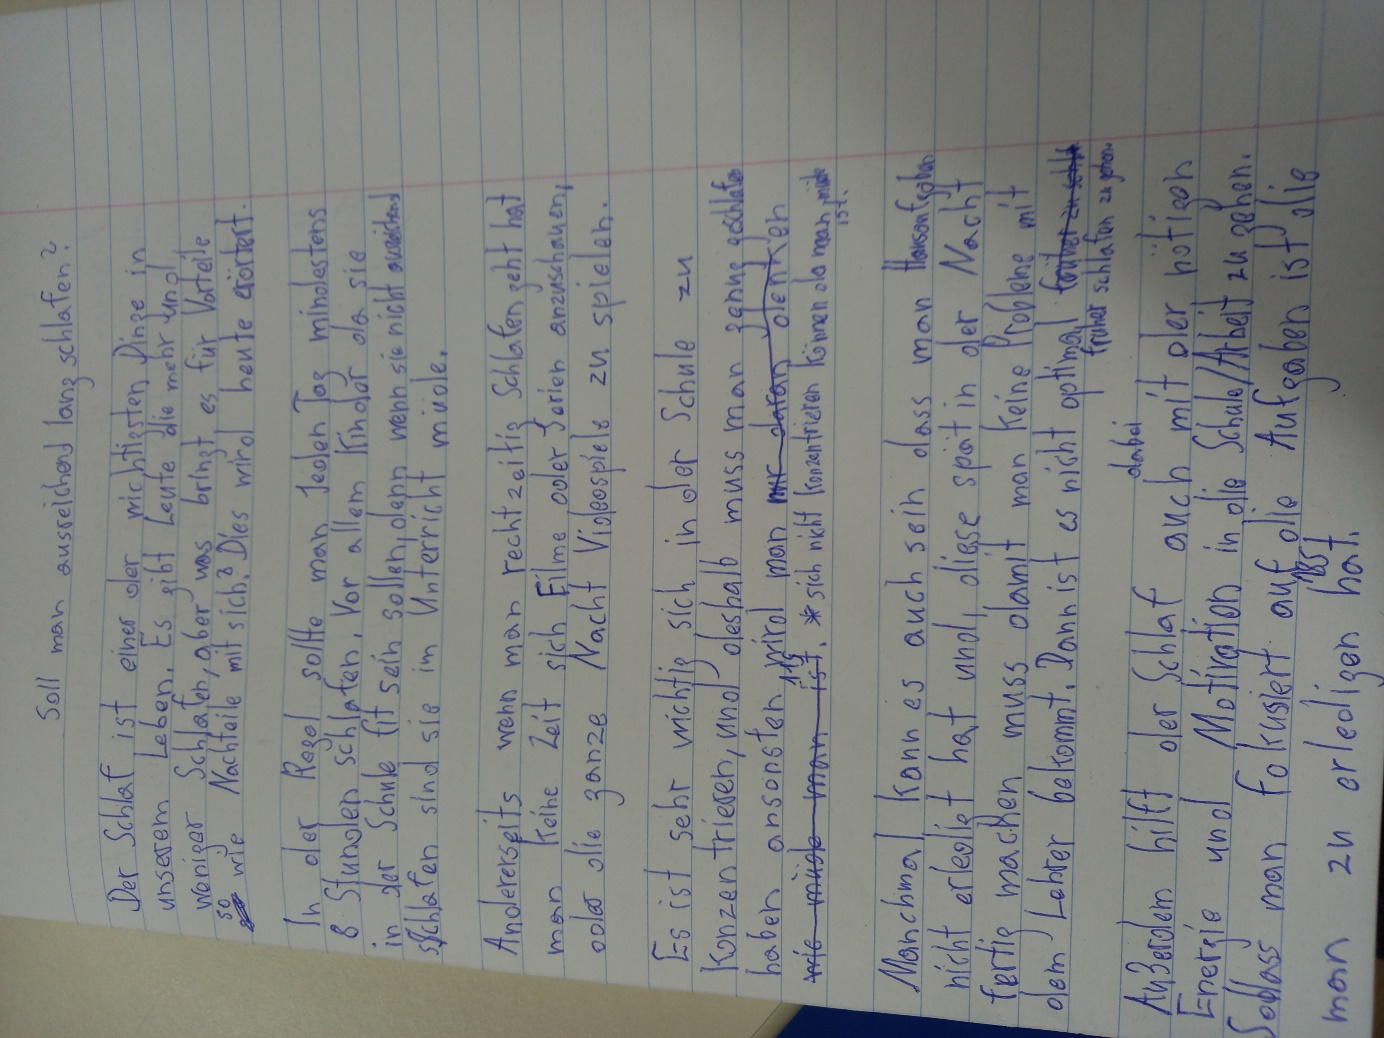 Soll man ausreichend lang schlafen?
Der Schlaf ist einer der wichtigsten Dinge in
unserem Leben. Es gibt Leute die mehr und
weniger Schlafen, aber was bringt es für Vorteile
so wie Nachteile mit sich? Dies wird heute erörtert.
In der Regel sollte man Jeden Tag mindestens
8 Stunden schlafen. Vor allem Kinder da sie
in der Schule fit sein sollen, denn wenn sie nicht ausreichend
schlafen sind sie im Unterricht müde.
Andererseits wenn man rechtzeitig Schlafen geht hat
man keine Zeit sich Filme oder Serien anzuschauen,
oder die ganze Nacht Videospiele zu spielen.
Es ist sehr wichtig sich in der Schule zu
konzentrieren, und deshalb muss man genug geschlafen
haben ansonsten wird man nur daran denken
wie müde man ist. * sich nicht konzentrieren können da man müde
ist.
119
Manchmal kann es auch sein dass man Hausaufgaben
nicht erledigt hat und, diese spät in der Nacht
fertig machen muss damit man keine Probleme mit
dem Lehrer bekommt. Dann ist es nicht optimal
früher schlafen zu gehen.
dabei
Außerdem hilft der Schlaf auch mit der nötigen
Energie und Motivation in die Schule/Arbeit zu gehen.
Sodass man fokusiert auf die Aufgaben ist die
man zu erledigen hat.
185